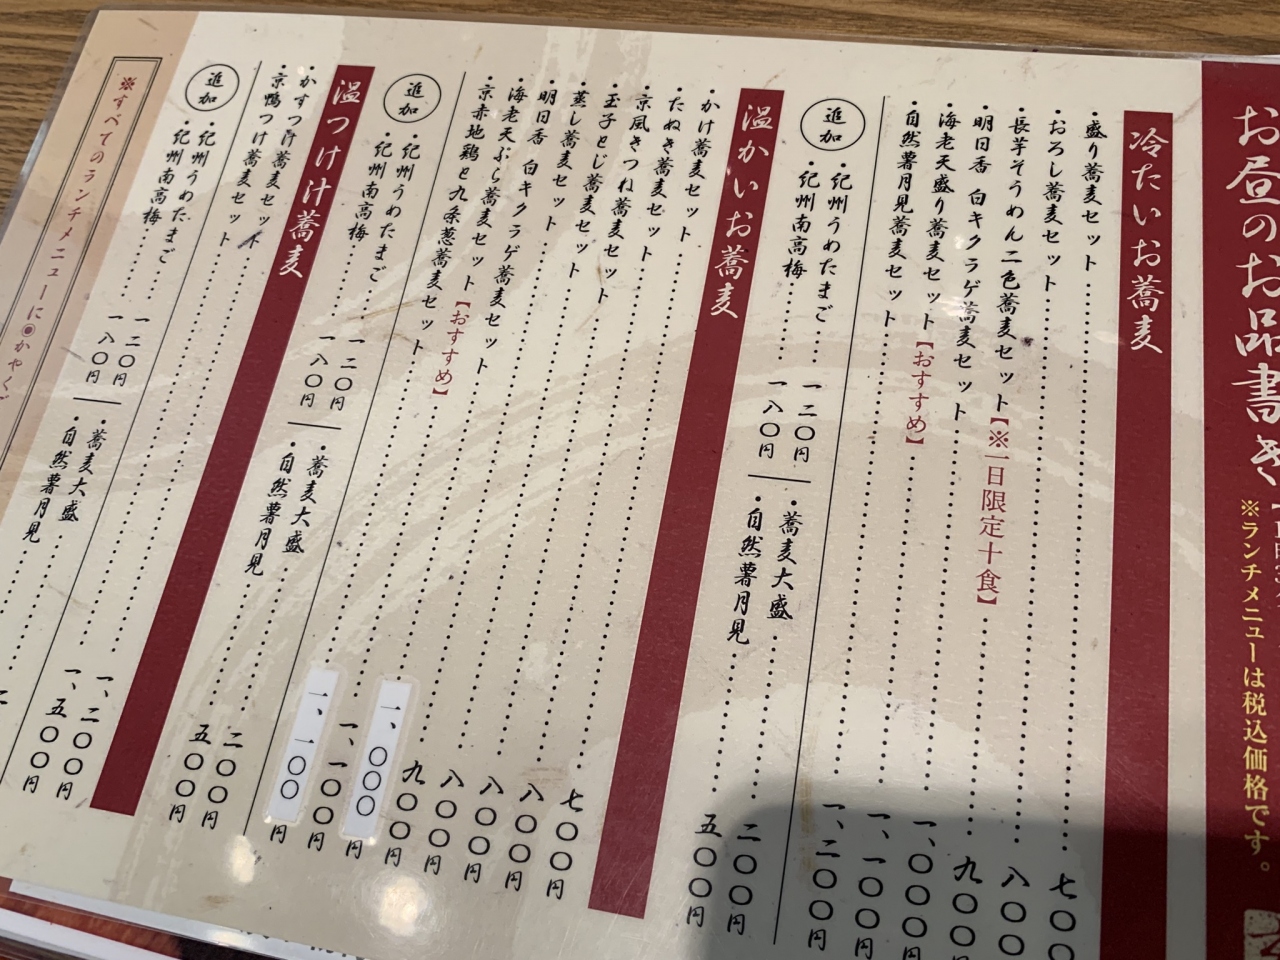 お昼のお品書き
※ランチメニューは税込価格です。
冷たいお蕎麦
・盛り蕎麦セット……七〇〇
・おろし蕎麦セット……八〇〇
・長芋そうめん二色蕎麦セット【※一日限定十食】……九〇〇
・明日香 白キクラゲ蕎麦セット……一、〇〇〇円
・海老天盛り蕎麦セット【おすすめ】……一、一〇〇円
・自然薯月見蕎麦セット……一、二〇〇円
追加
・紀州うめたまご……一二〇円
・紀州南高梅……一八〇円
・蕎麦大盛……二〇〇円
・自然薯月見……五〇〇円
温かいお蕎麦
・かけ蕎麦セット……七〇〇円
・たぬき蕎麦セット……八〇〇円
・京風きつね蕎麦セット……八〇〇円
・玉子とじ蕎麦セット……八〇〇円
・蒸し蕎麦セット……九〇〇円
・明日香 白キクラゲ蕎麦セット……一、〇〇〇円
・海老天ぷら蕎麦セット……一、一〇〇円
・京赤地鶏と九条葱蕎麦セット【おすすめ】……一、一〇〇円
追加
・紀州うめたまご……一二〇円
・紀州南高梅……一八〇円
・蕎麦大盛……二〇〇円
・自然薯月見……五〇〇円
温つけ汁蕎麦
・かすつけ蕎麦セット……一、二〇〇円
・京鴨つけ蕎麦セット……一、五〇〇円
追加
・紀州うめたまご……一二〇円
・紀州南高梅……一八〇円
・蕎麦大盛
・自然薯月見
※すべてのランチメニューに◉かやく